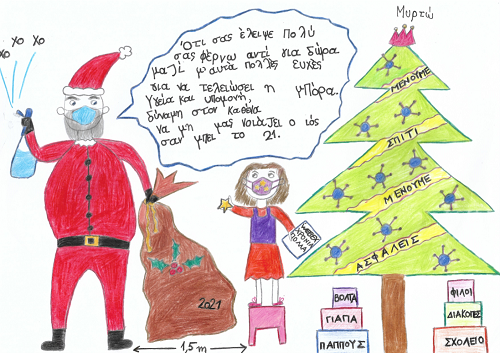 Μυρτώ
Χο Χο
Χο
Ότι σας έλειψε πολύ
σας φέρνω αντί για δώρα
μαζί μ'αυτά πολλές ευχές
για να τελειώσει η μπόρα.
Υγεία και υπομονή,
δύναμη στον καθένα
να μη μας νοιάζει ο ιός
σαν μπει το 21.
ΜΕΝΟΥΜΕ
ΣΠΙΤΙ
ΜΕΝΟΥΜΕ
ΑΣΦΑΛΕΙΣ
ΧΡΟΝΙΑ
ΠΟΛΛΑ
2021
1,5 m
ΒΟΛΤΑ
ΓΙΑΓΙΑ
ΠΑΠΠΟΥΣ
ΦΙΛΟΙ
ΔΙΑΚΟΠΕΣ
ΣΧΟΛΕΙΟ